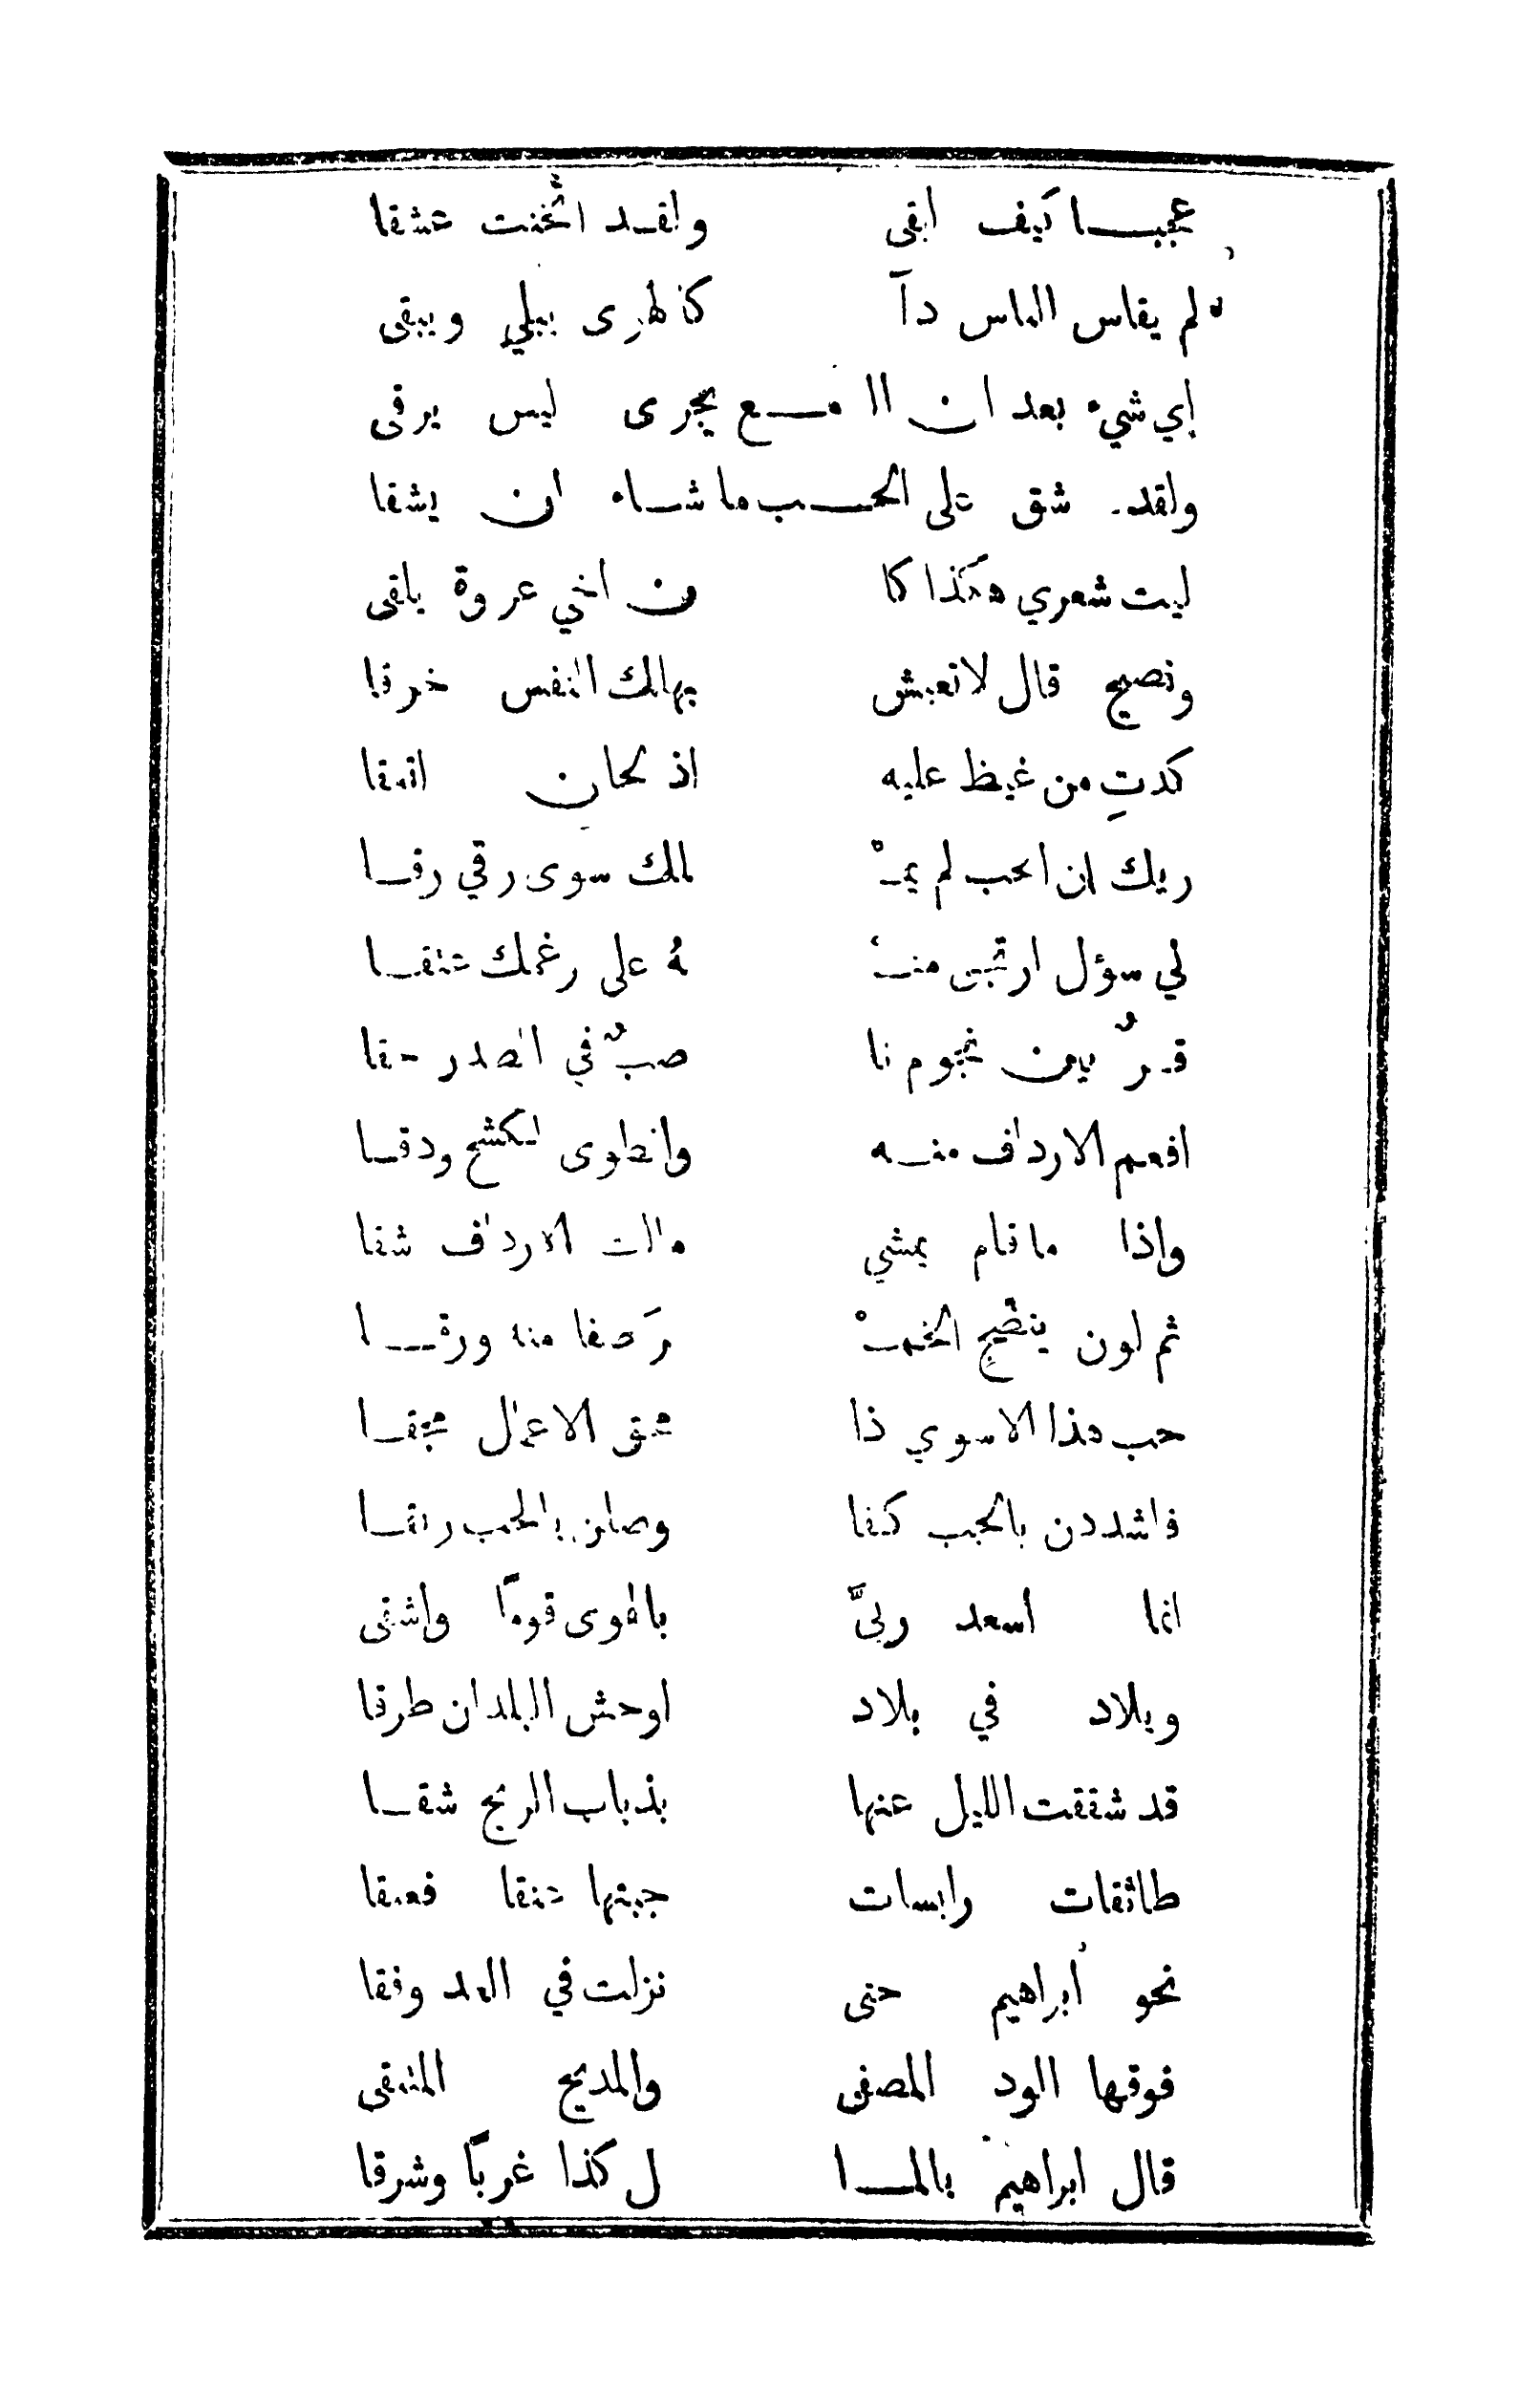 عجبـــا كيف ابقى ولقـد اثخنت عشقا
لم يقاس الناس دآ كالهوى يبلي ويبقى
إي شيء بعد ان الدمـع يجرى ليس يرقى
ولقد شق على الحـــب ما شـاء ان يشقا
ليت شعري هكذا كا ن اخي عروة يلقى
ونصيح قال لا تعبش بهالك النفس خرقا
كدتِ من غيظ عليه اذ لحان
ريك ان الحب لم يمـْ لك سوى رقي رفـا
لي سؤل ارتجى منـ هُ على رغمك عنقـا
قمرٌ بين نجوم نا صبٌ في الصدر حقا
افعم الارداف منـه وانطوى الكشح ودقـا
واذا ما قام يمشي مالت الارداف شقا
ثم لون ينضج الخمـْ رَ صفا منه ورقـــا
حب هذا لا سوي ذا محق الاعمال محقـا
فاشددن بالحب كفا وصلن بالحب ربقـا
انما أسعد ربيَّ بالهوى قومًا واشقى
وبلاد في بلاد اوحش البلدان طرقا
قد شققت الليل عنها بذباب الريح شقـا
طائقات رابسات جبتها عنقا فعنقا
نحو أبراهيم حتى نزلت في العد وفقا
فوقها الود المصفى والمديح المتنقى
قال ابراهيم بالمـــا ل كذا غربًا وشرقا